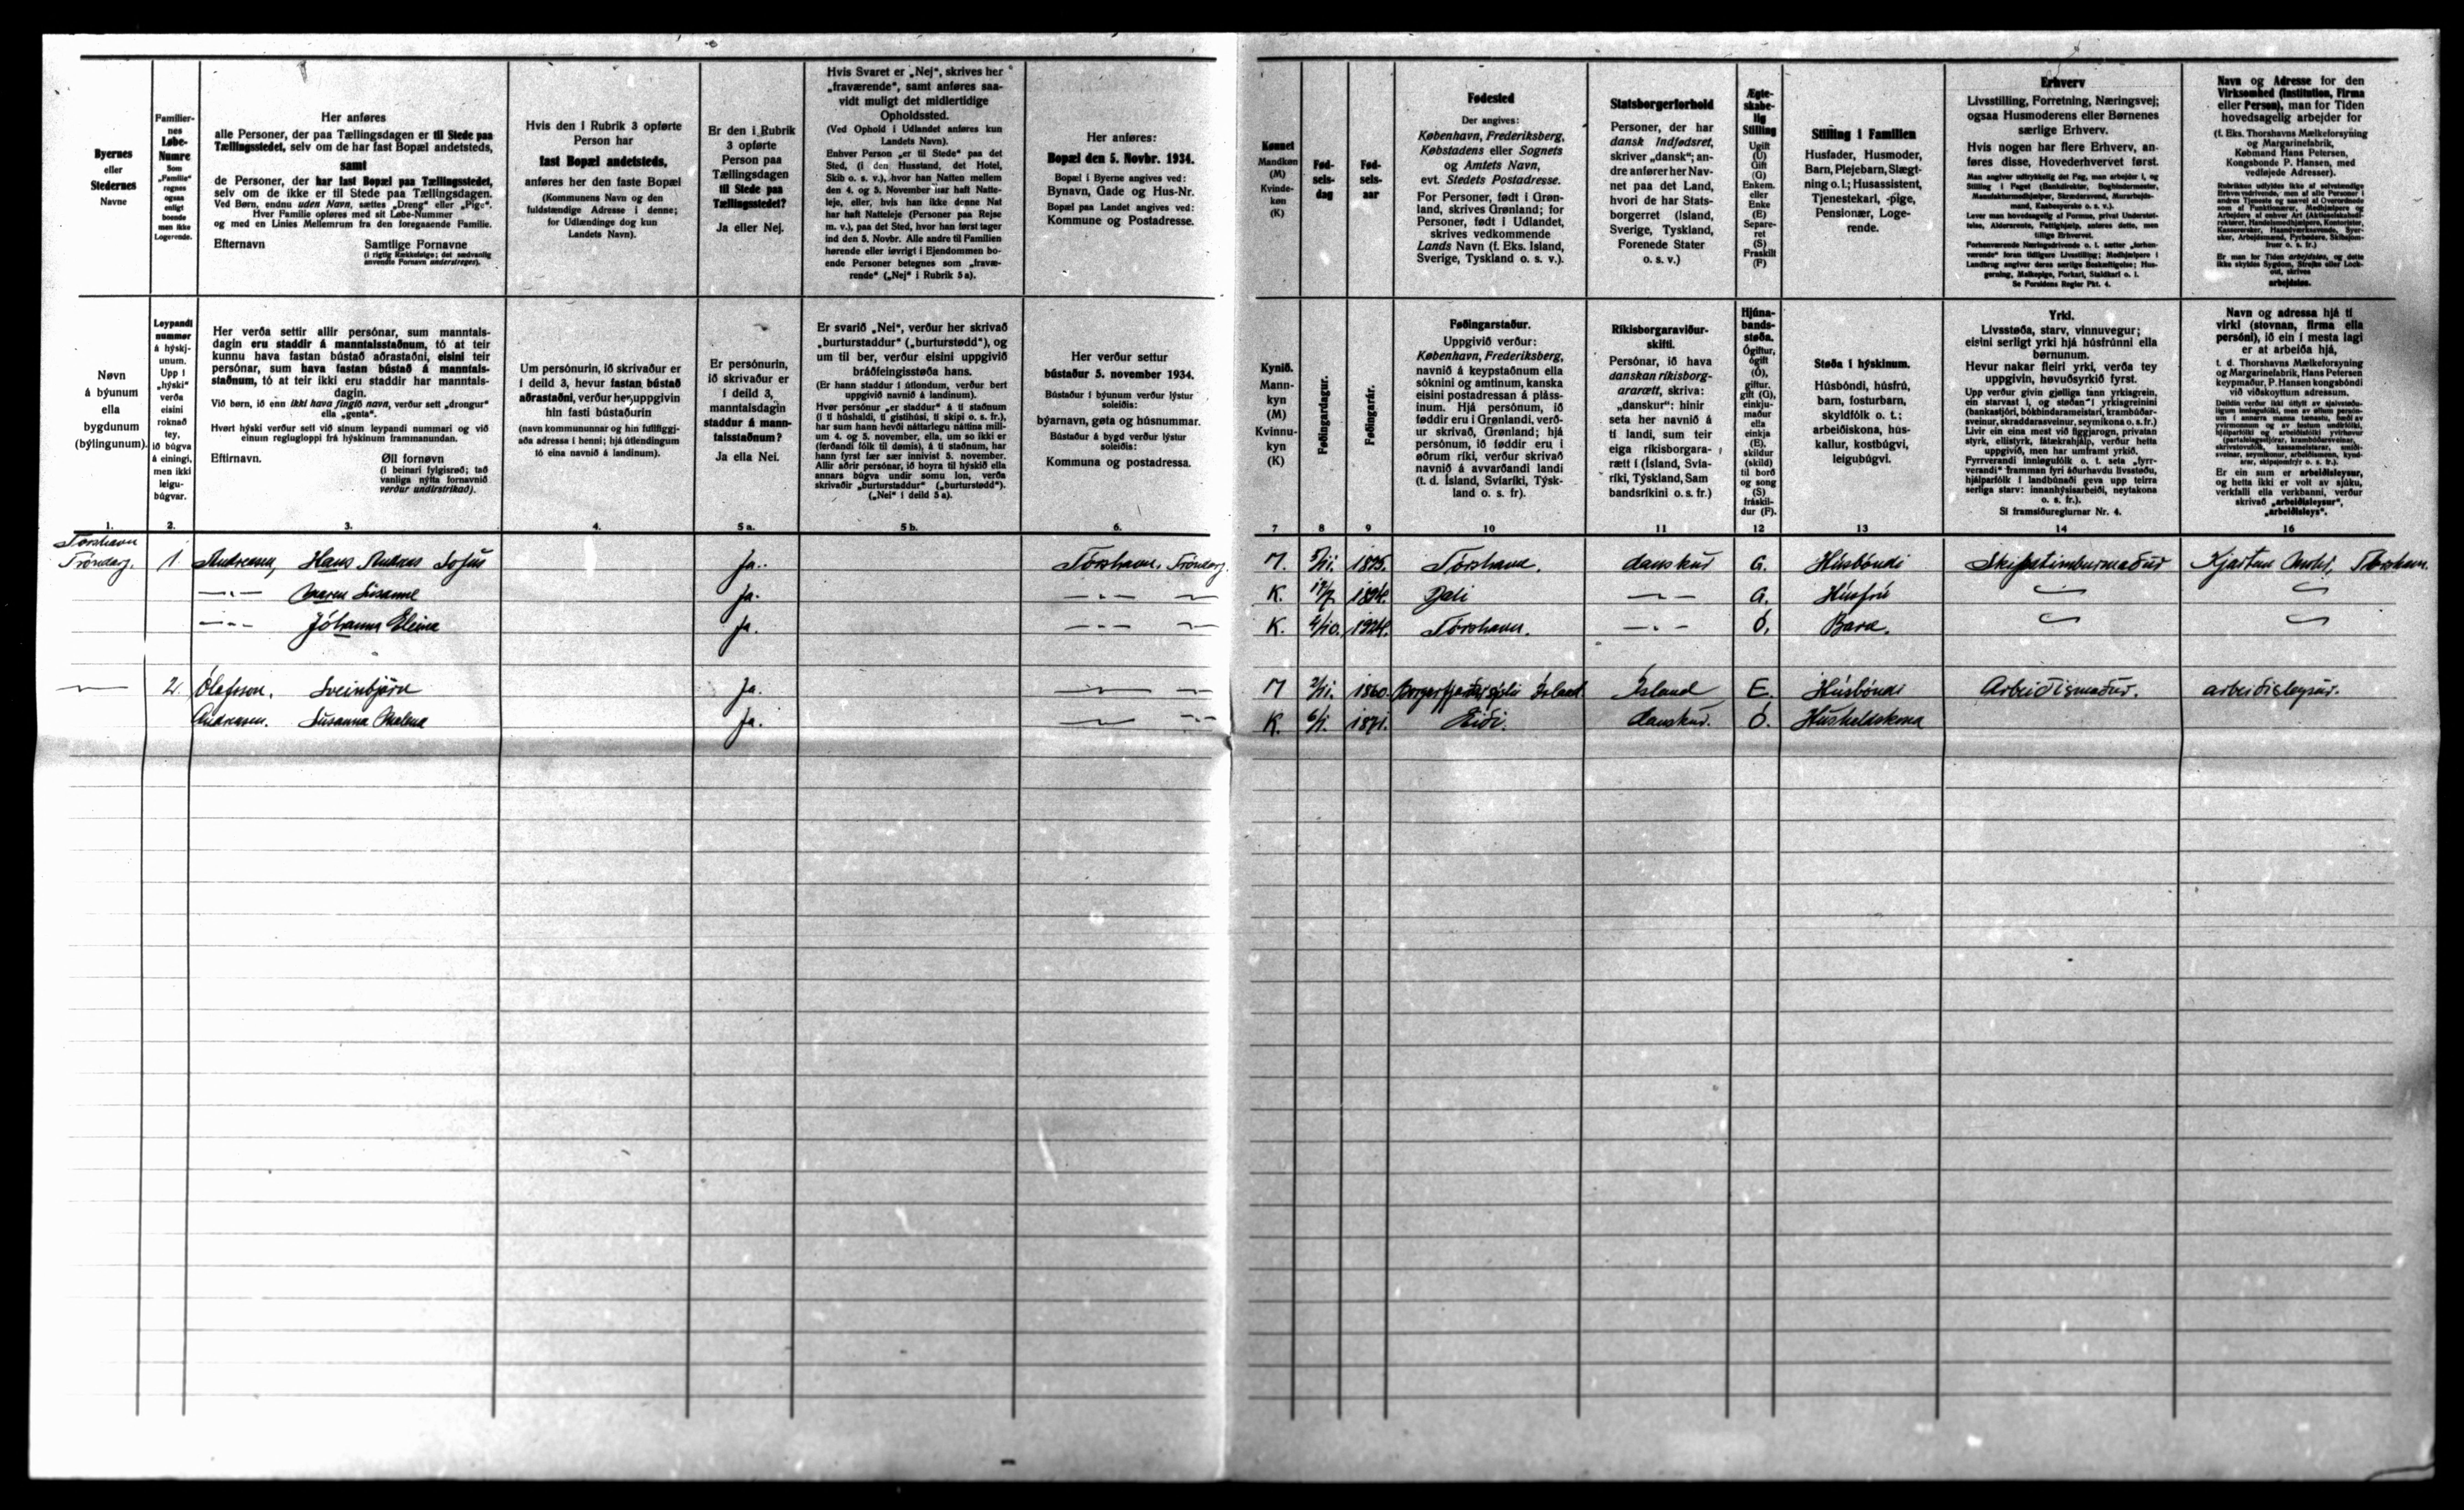 Byernes
eller
Stedernes
Navne
Familier-
nes
Løbe-
Numre
Som
„Familie"
regnes
ogsaa
enligt
boende
men ikke
Logerende.
Her anføres
alle Personer, der paa Tællingsdagen er til Stede paa
Tællingsstedet, selv om de har fast Bopæl andetsteds,
samt
de Personer, der har fast Bopæl paa Tællingsstedet,
selv om de ikke er til Stede paa Tællingsdagen.
Ved Børn, endnu uden Navn, sættes „Dreng" eller „Pige".
Hver Familie opføres med sit Løbe-Nummer
og med en Linies Mellemrum fra den foregaaende Familie.
Efternavn Samtlige Fornavne
(i rigtig Rækkefølge; det sædvanlig
anvendte Fornavn understreges).
Hvis den i Rubrik 3 opførte
Person har
fast Bopæl andetsteds,
anføres her den faste Bopæl
(Kommunens Navn og den
fuldstændige Adresse i denne;
for Udlændinge dog kun
Landets Navn).
Er den i Rubrik
3 opførte
Person paa
Tællingsdagen
til Stede paa
Tællingsstedet?
Ja eller Nej.
Hvis Svaret er „Nej", skrives her
„fraværende", samt anføres saa-
vidt muligt det midlertidige
Opholdssted.
(Ved Ophold i Udlandet anføres kun
Landets Navn).
Enhver Person „er til Stede" paa det
Sted, (i den Husstand, det Hotel,
Skib o. s. v.), hvor han Natten mellem
den 4. og 5. November har haft Natte-
leje, eller, hvis han ikke denne Nat
har haft Natteleje (Personer paa Rejse
m. v.), paa det Sted, hvor han først tager
ind den 5. Novbr. Alle andre til Familien
hørende eller iøvrigt i Ejendommen bo-
ende Personer betegnes som „fravæ-
rende" („Nej" i Rubrik 5a).
Her anføres:
Bopæl den 5. Novbr. 1934.
Bopæl i Byerne angives ved:
Bynavn, Gade og Hus-Nr.
Bopæl paa Landet angives ved:
Kommune og Postadresse.
Kønnet
Mandkøn
(M)
Kvinde-
køn
(K)
Fød-
sels-
dag
Fød-
sels-
aar
Fødested
Der angives:
København, Frederiksberg,
Købstadens eller Sognets
og Amtets Navn,
evt. Stedets Postadresse.
For Personer, født i Grøn-
land, skrives Grønland; for
Personer, født i Udlandet,
skrives vedkommende
Lands Navn (f. Eks. Island,
Sverige, Tyskland o. s. v.).
Statsborgerforhold
Personer, der har
dansk Indfødsret,
skriver „dansk"; an-
dre anfører her Nav-
net paa det Land,
hvori de har Stats-
borgerret (Island,
Sverige, Tyskland,
Forenede Stater
o. s. v.)
Ægte-
skabe-
lig
Stilling
Ugift
(U)
Gift
(G)
Enkem.
eller
Enke
(E)
Separe-
ret
(S)
Fraskilt
(F)
Stilling i Familien
Husfader, Husmoder,
Barn, Plejebarn, Slægt-
ning o. l.; Husassistent,
Tjenestekarl, -pige,
Pensionær, Loge-
rende.
Erhverv
Livsstilling, Forretning, Næringsvej;
ogsaa Husmoderens eller Børnenes
særlige Erhverv.
Hvis nogen har flere Erhverv, an-
føres disse, Hovederhvervet først.
Se Forsidens Regler Pkt. 4.
Navn og Adresse for den
Virksomhed (Institution, Firma
eller Person), man for Tiden
hovedsagelig arbejder for
(f. Eks. Thorshavns Mælkeforsyning
og Margarinefabrik,
Købmand Hans Petersen,
Kongsbonde P. Hansen, med
vedføjede Adresser).
Er man for Tiden arbejdsløs, og dette
ikke skyldes Sygdom, Strejke eller Lock-
out, skrives
arbejdsløs.
Nøvn
á býunum
ella
bygdunum
(býlingunum).
Leypandi
nummør
á hýskj-
unum.
Upp í
„hýski"
verða
eisini
roknað
tey,
ið búgva
á einingi,
men ikki
leigu-
búgvar.
Her verða settir allir persónar, sum manntals-
dagin eru staddir á manntalsstaðnum, tó at teir
kunnu hava fastan bústað aðrastaðni, eisini teir
persónar, sum hava fastan bústað á manntals-
staðnum, tó at teir ikki eru staddir har manntals-
dagin.
Við børn, ið enn ikki hava fingið navn, verður sett „drongur"
ella „genta".
Hvørt hýski verður sett við sínum leypandi nummari og við
einum reglugloppi frá hýskinum frammanundan.
Eftirnavn. Øll fornøvn
(í beinari fylgisrøð; tað
vanliga nýtta fornavnið
verður undirstrikað).
Um persónurin, ið skrivaður er
í deild 3, hevur fastan bústað
aðrastaðni, verður her uppgivin
hin fasti bústaðurin
(navn kommununnar og hin fullfíggj-
aða adressa í henni; hjá útlendingum
tó eina navnið á landinum).
Er persónurin,
ið skrivaður er
í deild 3,
manntalsdagin
staddur á mann-
talsstaðnum?
Ja ella Nei.
Er svarið „Nei", verður her skrivað
„burturstaddur" („burturstødd"), og
um til ber, verður eisini uppgivið
bráðfeingisstøða hans.
(Er hann staddur í útlondum, verður bert
uppgivið navnið á landinum).
Hvør persónur „er staddur" á tí staðnum
(í tí húshaldi, tí gistihúsi, tí skipi o. s. fr.),
har sum hann hevði náttarlegu náttina mill-
um 4. og 5. november, ella, um so ikki er
(ferðandi fólk til dømis), á tí staðnum, har
hann fyrst fær sær innivist 5. november.
Allir aðrir persónar, ið hoyra til hýskið ella
annars búgva undir somu lon, verða
skrivaðir „burturstaddur" („burturstødd").
(„Nei" í deild 5 a).
Her verður settur
bústaður 5. november 1934.
Bústaður í býunum verður lýstur
soleiðis:
býarnavn, gøta og húsnummar.
Bústaður á bygd verður lýstur
soleiðis:
Kommuna og postadressa.
Kynið.
Mann-
kyn
(M)
Kvinnu-
kyn
(K)
Føðingardagur.
Føðingarár.
Føðingarstaður.
Uppgivið verður:
København, Frederiksberg,
navnið á keypstaðnum ella
sóknini og amtinum, kanska
eisini postadressan á pláss-
inum. Hjá persónum, ið
føddir eru í Grønlandi, verð-
ur skrivað, Grønland; hjá
persónum, ið føddir eru í
øðrum ríki, verður skrivað
navnið á avvarðandi landi
(t. d. Ísland, Svíaríki, Týsk-
land o. s. fr).
Ríkisborgaraviður-
skifti.
Persónar, ið hava
danskan ríkisborg-
ararætt, skriva:
„danskur"; hinir
seta her navnið á
tí landi, sum teir
eiga ríkisborgara-
rætt í (Ísland, Svía-
ríki, Týskland, Sam
bandsríkini o. s. fr.)
Hjúna-
bands-
støða.
Ógiftur,
ógift
(Ó),
giftur,
gift (G),
einkju-
maður
ella
einkja
(E),
skildur
(skild)
til borð
og song
(S)
fráskil-
dur (F).
Støða í hýskinum.
Húsbóndi, húsfrú,
barn, fosturbarn,
skyldfólk o. t.;
arbeiðiskona, hús-
kallur, kostbúgvi,
leigubúgvi.
Yrki.
Lívsstøða, starv, vinnuvegur;
eisini serligt yrki hjá húsfrúnni ella
børnunum.
Hevur nakar fleiri yrki, verða tey
uppgivin, høvuðsyrkið fyrst.
Sí framsíðureglurnar Nr. 4.
Navn og adressa hjá tí
virki (stovnan, firma ella
persóni), ið ein í mesta lagi
er at arbeiða hjá,
t. d. Thorshavns Mælkeforsyning
og Margarinefabrik, Hans Petersen
keypmaður, P. Hansen kongsbóndi
við viðskoyttum adressum.
Er ein sum er arbeiðisleysur,
og hetta ikki er volt av sjúku,
verkfalli ella verkbanni, verður
skrivað „arbeiðisleysur",
„arbeiðisleys".
1. 2. 3. 4. 5 a. 5 b. 6. 7 8 9 10 11 12 13 14 16
Torshavn
Tróndarg. 1. Andreasen, Hans Andreas Sofus Ja. Tórshavn, Tróndarg. M. 5/11. 1875. Tórshavn. danskur G. Húsbóndi Skipatimburmaður Kjartan Tórshavn.
—„— Maren Susanne Ja. —„— — K. 1874. Dali —„— G. Húsfrú
—„— Jóhanna Elina Ja. —„— — K. 1924. Tórshavn. —„— Ó. Barn.
— 2. Ólafsson, Sveinbjörn Ja. — — M 2/11. 1860. Ísland Ísland E. Húsbóndi Arbeiðismaður. arbeiðisleysur.
Andreasen. Susanna Malena Ja. — — K. 6/1. 1871. Eiði. danskur. Ó. Húsheldskona